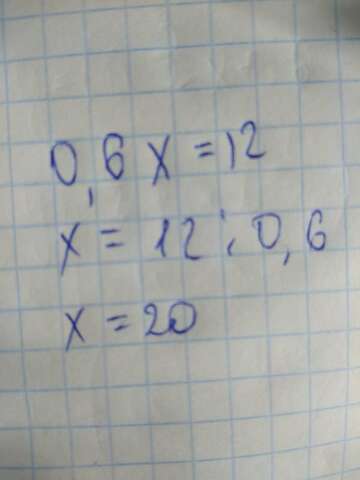 0,6 x = 12
x = 12 : 0,6
x = 20